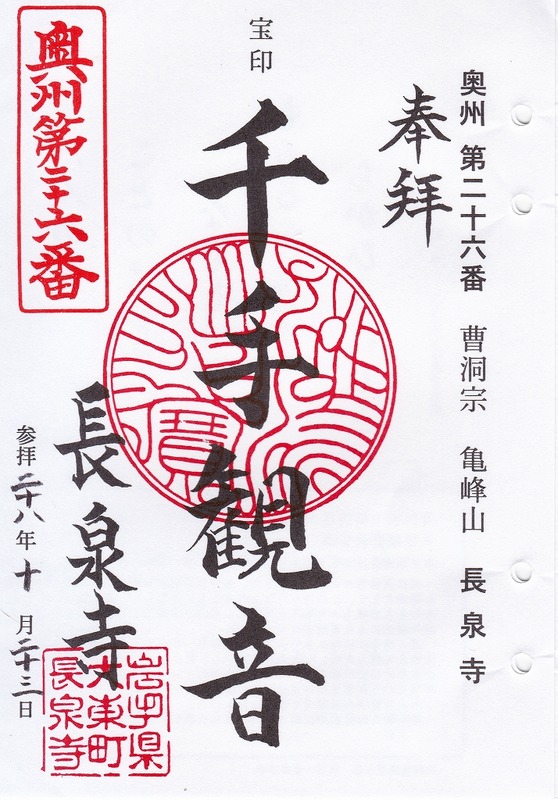 奥州 第二十六番 曹洞宗 亀峰山 長泉寺
奉拝
宝印
千手観音
長泉寺
参拝二十八年十月二十三日
奥州第二十六番
岩手県
大東町
長泉寺